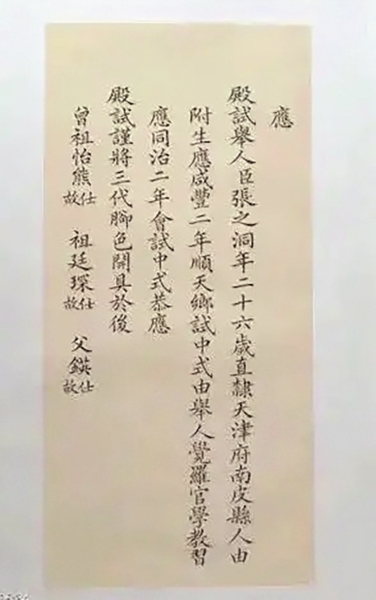 應
殿試舉人臣張之洞年二十六歲直隸天津府南皮縣人由
附生應咸豐二年順天鄉試中式由舉人覺羅官學教習
應同治二年會試中式恭應
殿試謹將三代腳色開具於後
曾祖怡熊仕故 祖廷琛仕故 父鍈仕故